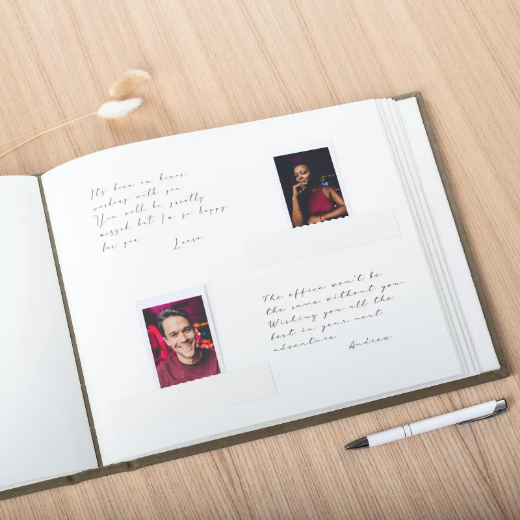 It's been an honor
working with you
You will be greatly
missed but I'm so happy
for you
The office won't be
the same without you.
Wishing you all the
best in your next
adventure
Andrew